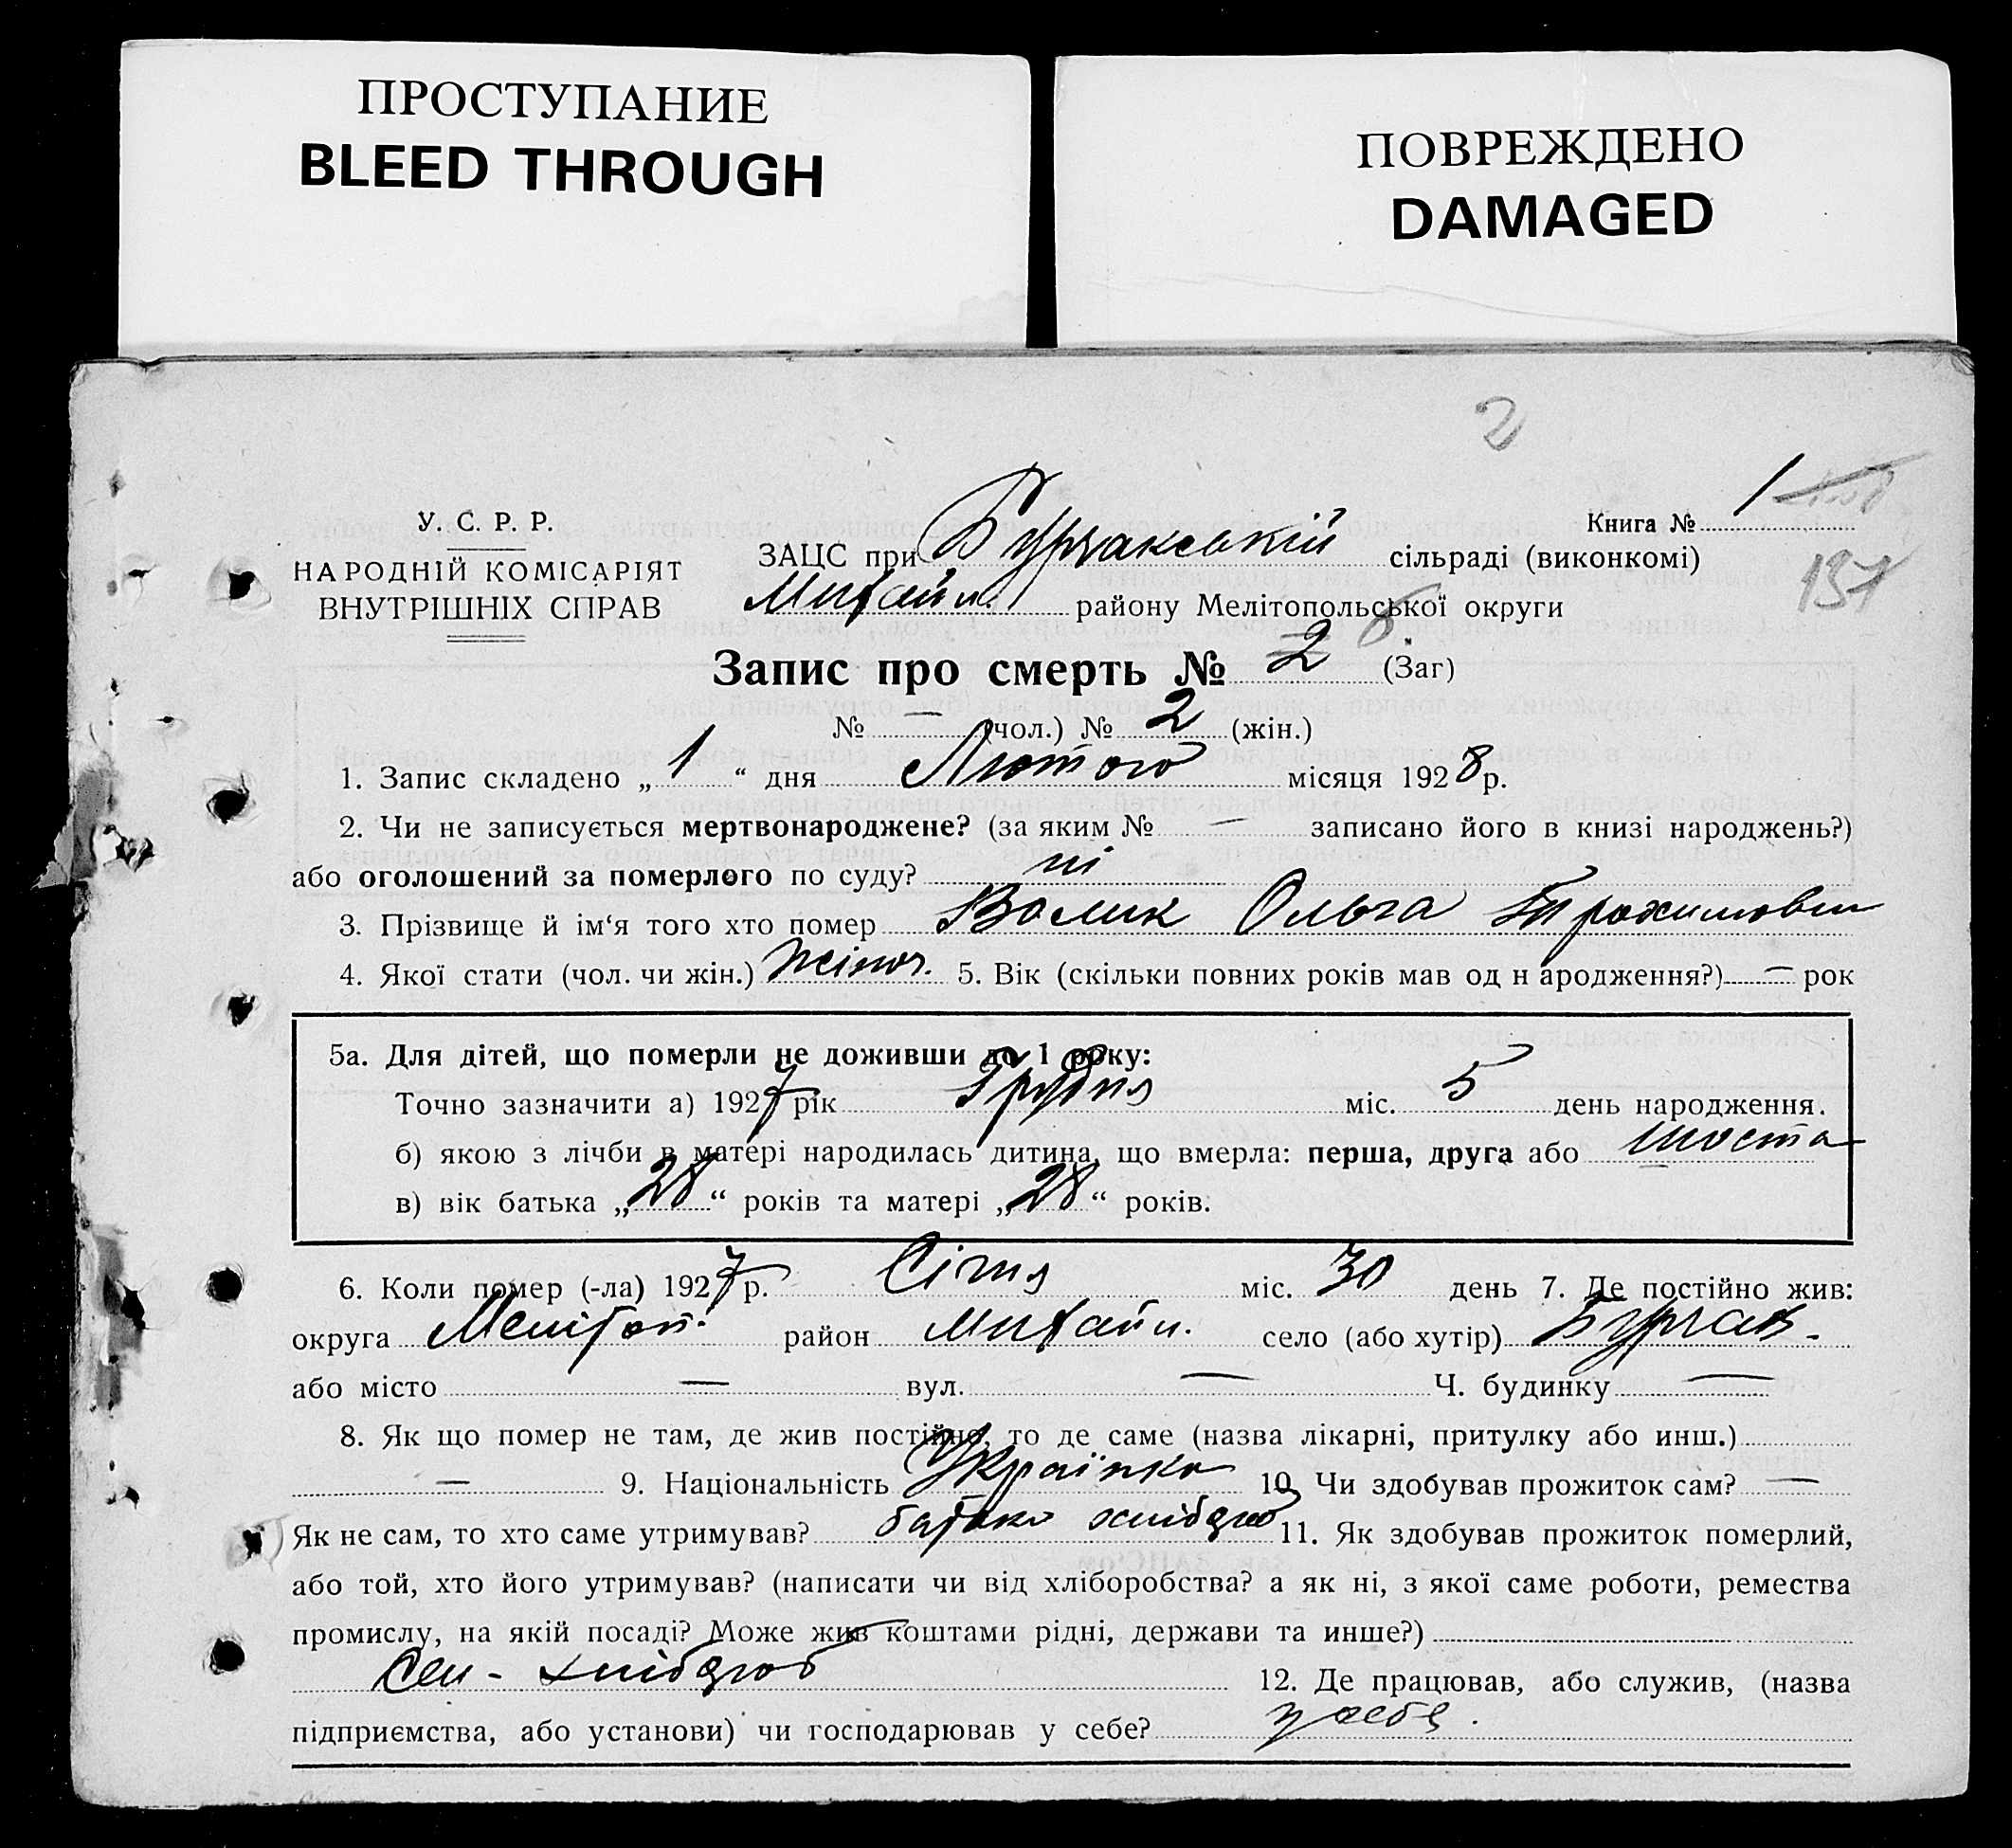 ПРОСТУПАНИЕ
BLEED THROUGH
ПОВРЕЖДЕНО
DAMAGED
2
У. С. Р. Р.
НАРОДНІЙ КОМІСАРІЯТ
ВНУТРІШНІХ СПРАВ
Книга № 1
151
ЗАЦС при Бурчакській сільраді (виконкомі)
Михайл. району Мелітопольської округи
Запис про смерть № 2 6. (Заг)
№ — (чол.) № 2 (жін.)
1. Запис складено „ 1 “ дня Лютого місяця 1928 р.
2. Чи не записується мертвонароджене? (за яким № — записано його в книзі народжень?)
або оголошений за померлого по суду? ні
3. Прізвище й ім‘я того хто помер Волик Ольга Трохимовн
4. Якої стати (чол. чи жін.) жіноч. 5. Вік (скільки повних років мав од н ародження?) — рок
5а. Для дітей, що померли не доживши до 1 року:
Точно зазначити а) 1927 рік Грудня міс. 5 день народження.
б) якою з лічби в матері народилась дитина, що вмерла: перша, друга або шоста
в) вік батька „ 28 “ років та матері „ 28 “ років.
6. Коли помер (-ла) 1927 р. Січня міс. 30 день 7. Де постійно жив:
округа Меліт район Михайл. село (або хутір) Бурчак.
або місто — вул. — Ч. будинку —
8. Як що помер не там, де жив постійно, то де саме (назва лікарні, притулку або инш.)
— 9. Національність Українка 10. Чи здобував прожиток сам? —
Як не сам, то хто саме утримував? батько хлібороб 11. Як здобував прожиток померлий,
або той, хто його утримував? (написати чи від хліборобства? а як ні, з якої саме роботи, ремества
промислу, на якій посаді? Може жив коштами рідні, держави та инше?)
Сел - хлібороб 12. Де працював, або служив, (назва
підприємства, або установи) чи господарював у себе? у себе.